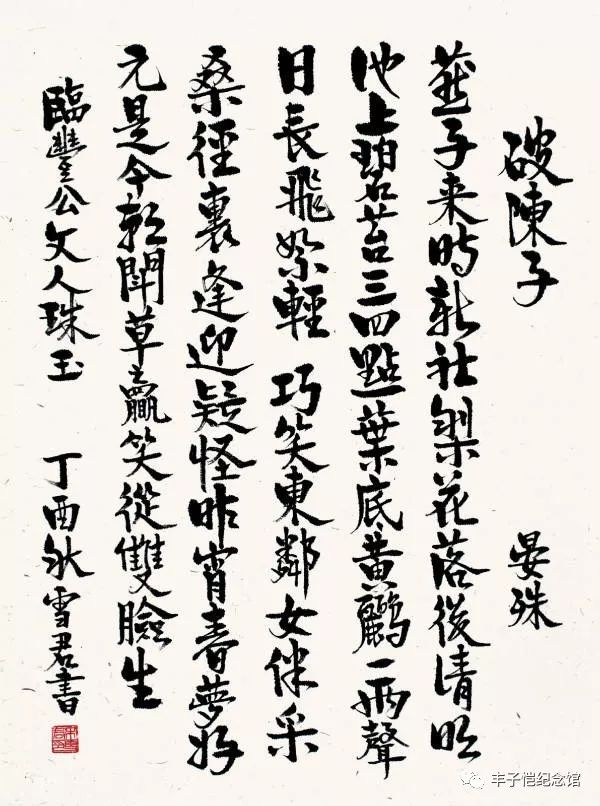 破陳子 晏殊
燕子来時新社梨花落後清明
池上碧苔三四點葉底黃鸝一兩聲
日長飛絮輕 巧笑東鄰女伴采
桑徑裏逢迎疑怪昨宵春夢好
元是今朝鬥草贏笑從雙臉生
臨豐公文人珠玉 丁酉秋雪君書
丰子恺纪念馆